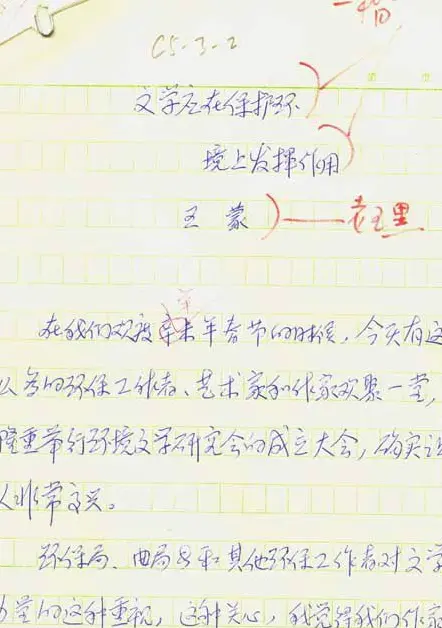 C5-3-2
文学应在保护环
境上发挥作用
王 蒙
老五黑
在我们欢度辛未年春节的时候,今天有这
么多的环保工作者、艺术家和作家欢聚一堂,
隆重举行环境文学研究会的成立大会,确实让
人非常高兴。
环保局、曲局长和其他环保工作者对文学
力量的这种重视,这种关心,我觉得我们作家